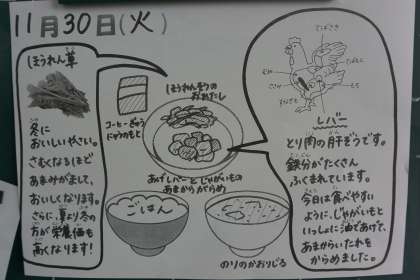 11月30日(火)
ほうれん草
冬に
おいしいやさい。
さむくなるほど
あまみがまして、
おいしくなります。
さらに、夏より冬の
方が栄養価も
高くなります!
コーヒーぎゅう
にゅうのもと
ほうれんそうの
おひたし
あげレバーとじゃがいもの
あまからがらめ
ごはん
のりのかおりじる
てばさき
むね
ささみ
もも
すなぎも
レバー
とり肉の肝ぞうです。
鉄分がたくさん
ふくまれています。
今日は食べやすい
ように、じゃがいもと
いっしょに油であげて、
あまからいたれを
からめました。